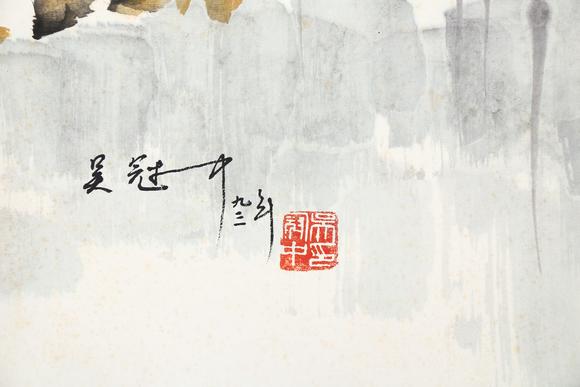 吴冠中
九三年
吴冠中印